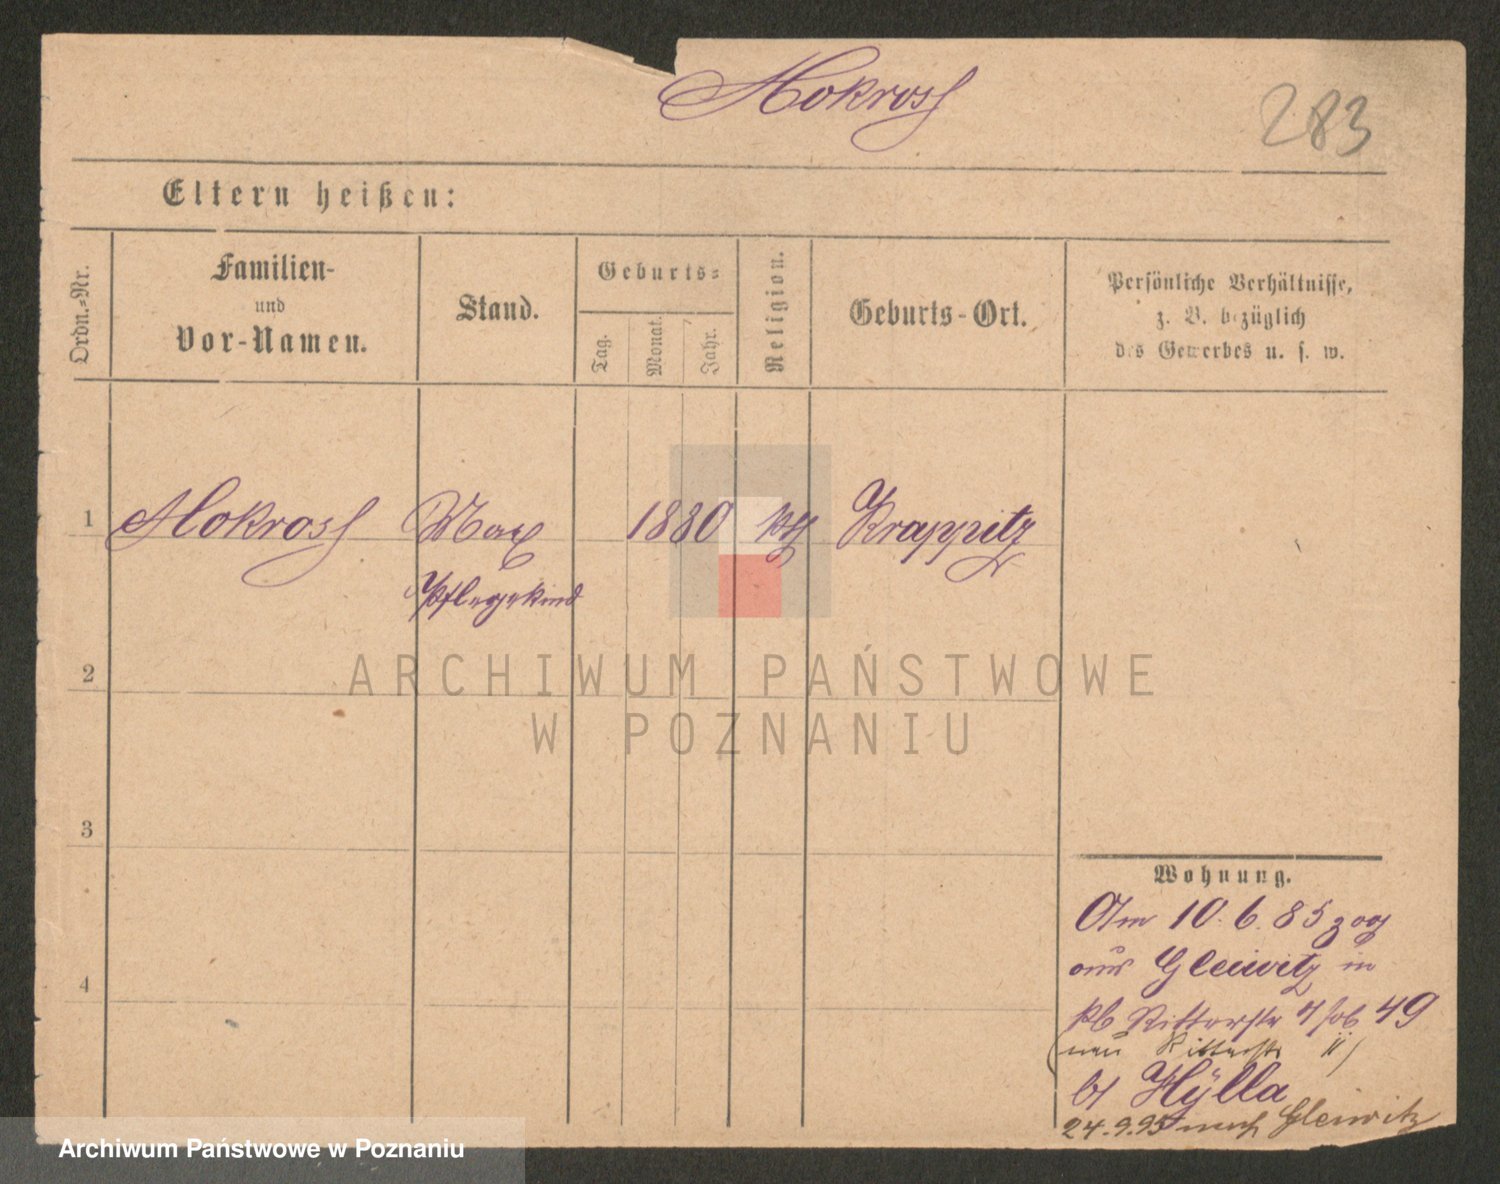 Mokross
283
Eltern heißen:
Ordn.-Nr.
Familien-
und
Vor-Namen.
Stand.
Geburts-
Tag.
Monat.
Jahr.
Religion.
Geburts-Ort.
Persönliche Verhältnisse,
z. B. bezüglich
des Gewerbes u. s. w.
1 Mokross Max 1880 kth Krappitz
Pflegekind
2
ARCHIWUM PAŃSTWOWE
W POZNANIU
3
4
Wohnung.
Am 10. 6. 85 zog
aus Gleiwitz in
Ritterstr 49
(neu Ritterstr 11)
bei Hÿlla
24.9.95 nach Gleiwitz
Archiwum Państwowe w Poznaniu